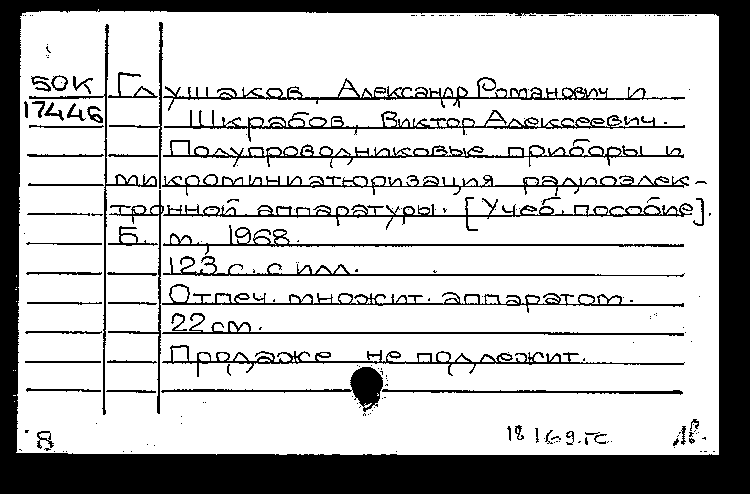 50К Глушаков, Александр Романович и
17446 Шкрабов, Виктор Алексеевич.
Полупроводниковые приборы и
микроминиатюризация радиоэлек-
тронной аппаратуры. [Учеб. пособие].
Б. м., 1968.
123 с. с илл.
Отпеч. множит. аппаратом.
22 см.
Продаже не подлежит.
8 18 169.ГС 1в.